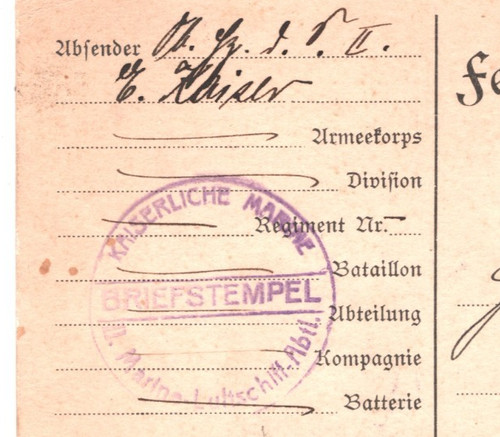 Absender Ob. Hz. d. S. II.
E. Kaiser
Armeekorps
Division
Regiment Nr. –
Bataillon
Abteilung
Kompagnie
Batterie
KAISERLICHE MARINE
BRIEFSTEMPEL
II. Marine-Luftschiff-Abtl.
Fe